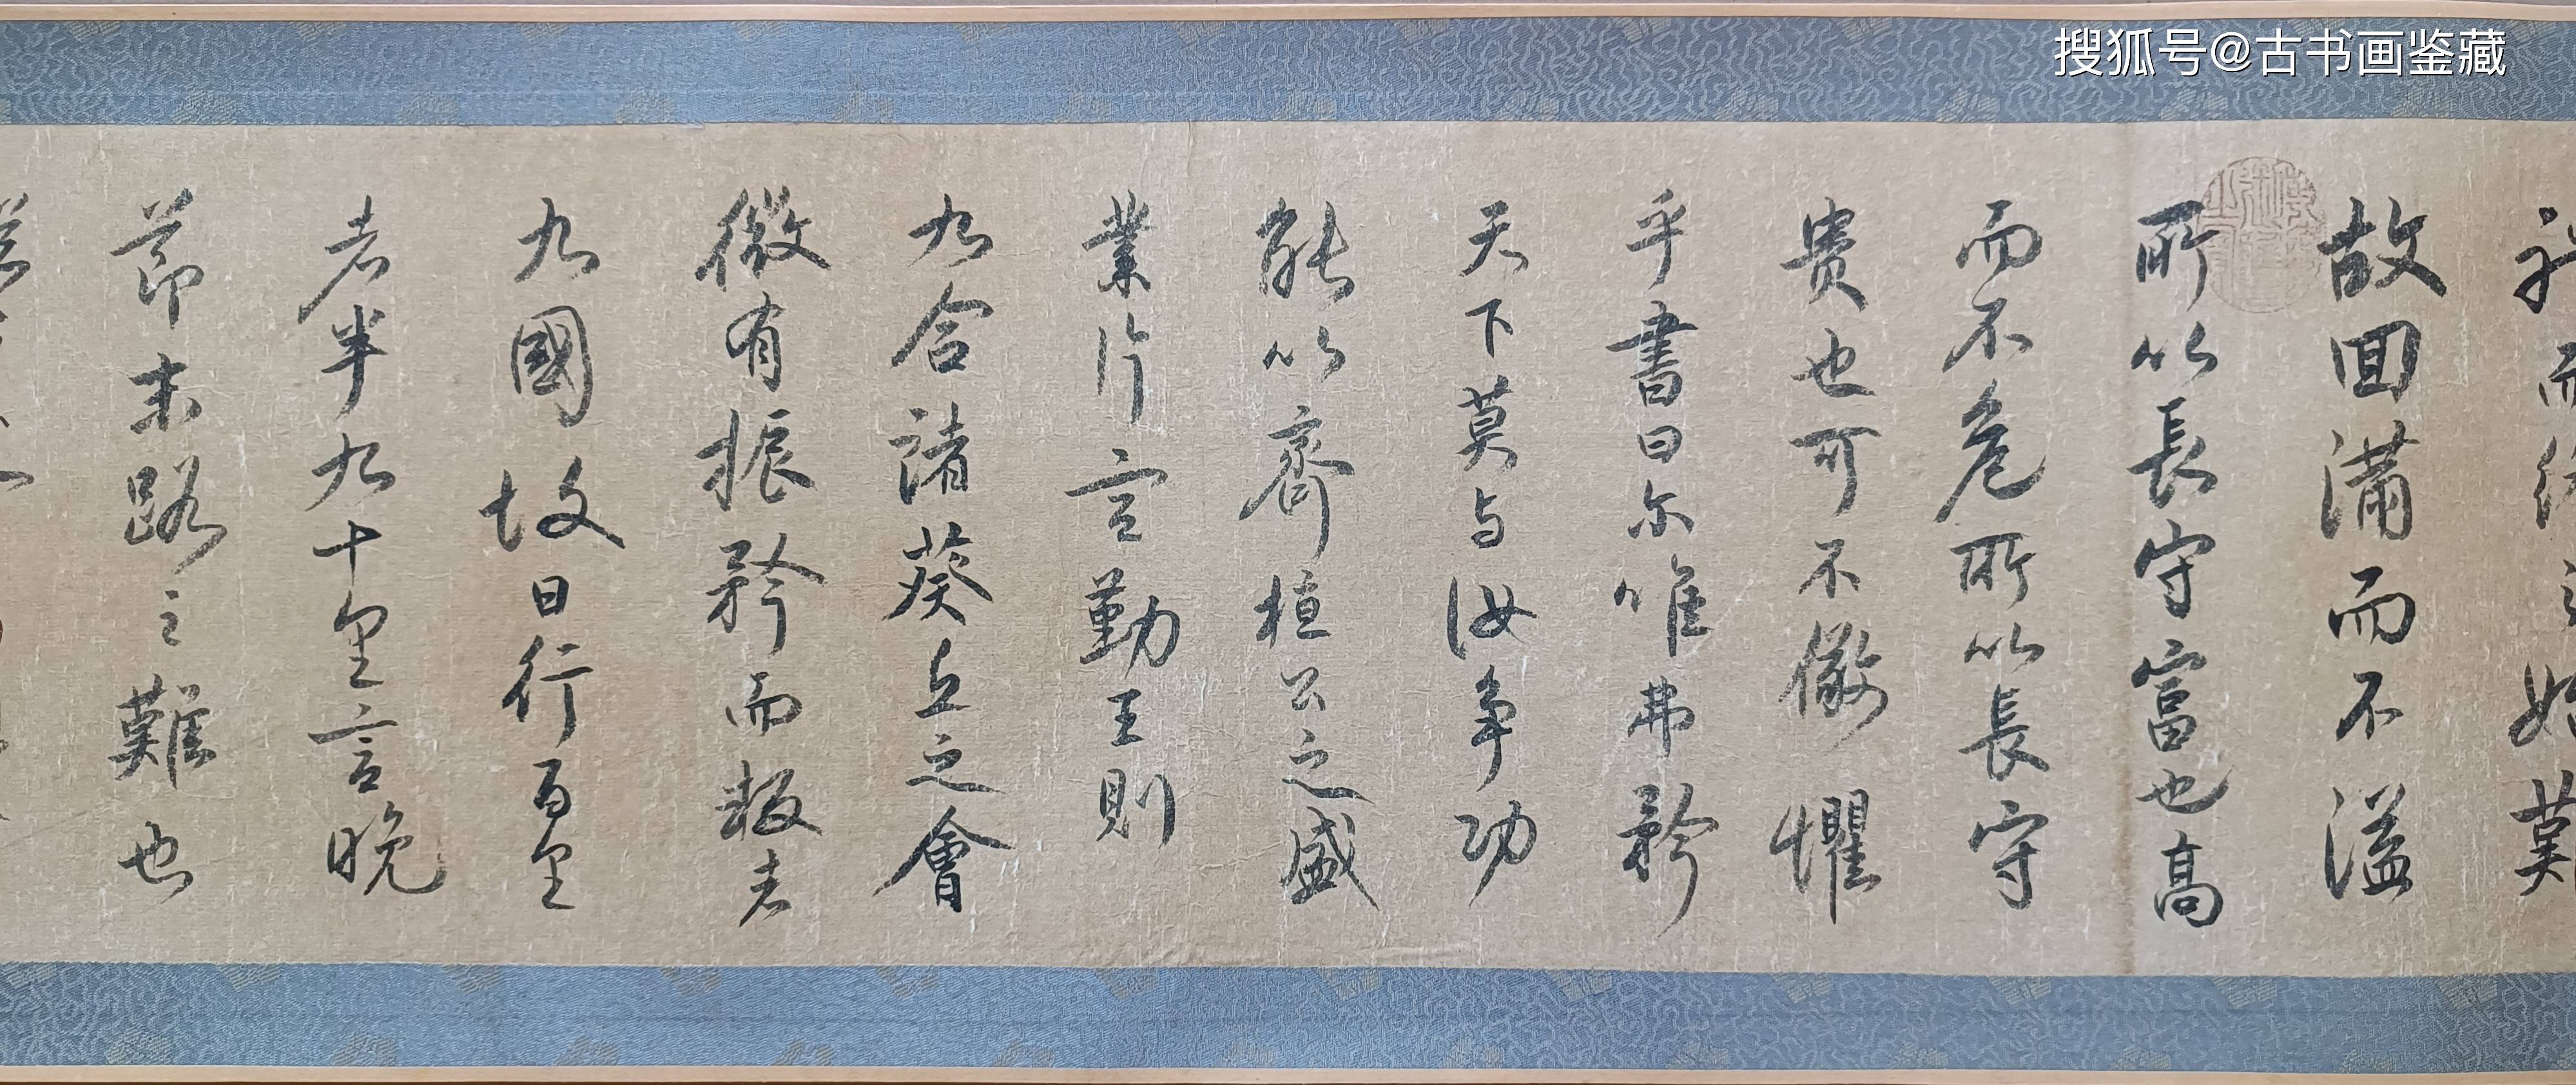 故回滿而不溢
所以長守富也高
而不危所以長守
貴也可不儆懼
乎書曰尔唯弗矜
天下莫与汝争功
能以齊桓公之盛
業片言勤王則
九合諸葵丘之會
微有振矜而叛者
九國故曰行百里
者半九十里言晚
節末路之難也
搜狐号@古书画鉴藏